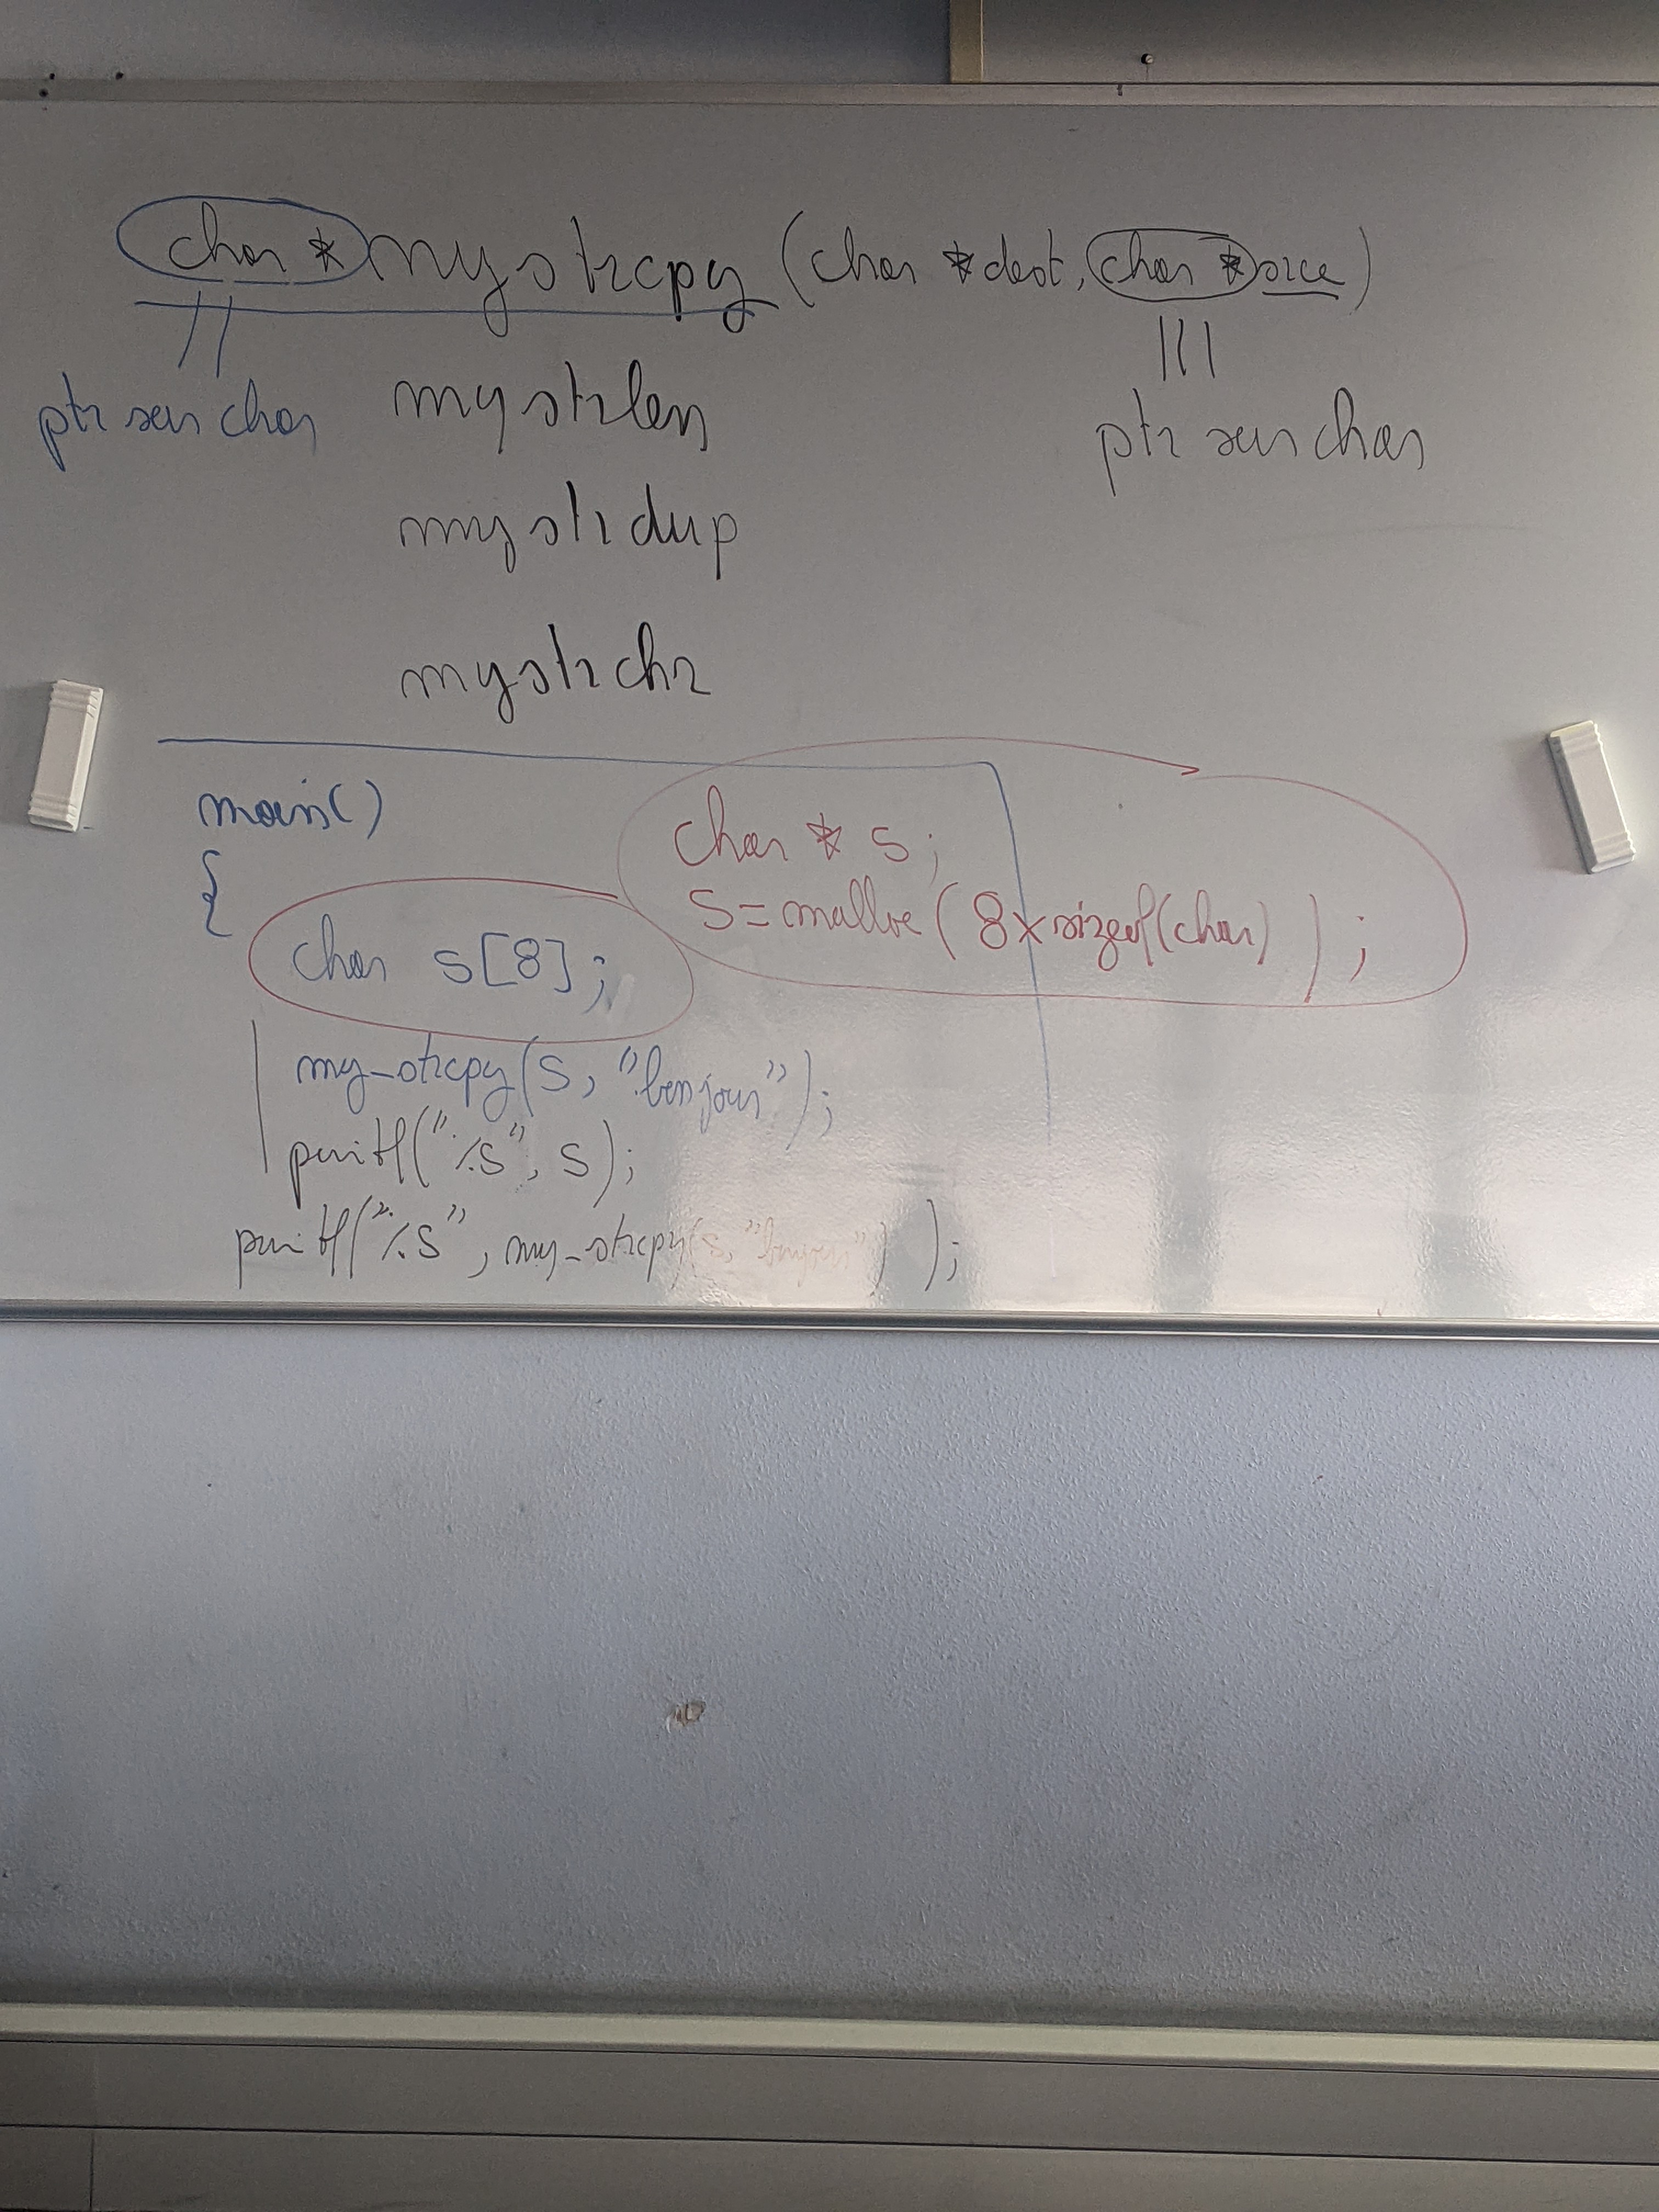 char * mystrcpy (char *dest, char *srce)
ptr sur char
ptr sur char
mystrlen
mystrdup
mystrchr
main()
{
char * s;
s=malloc( 8×sizeof(char) );
char s[8];
my_strcpy(s, "bonjour");
printf("%s", s);
printf("%s", my_strcpy(s, "bonjour") );